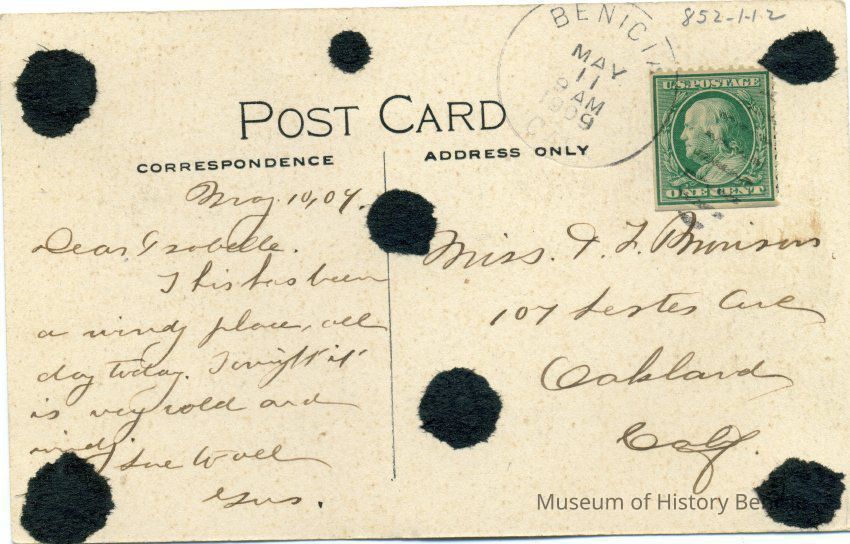 852-1-12
BENICIA
MAY
11
9 AM
1909
CAL
U.S. POSTAGE
ONE CENT
POST CARD
CORRESPONDENCE
ADDRESS ONLY
May. 10, 09.
Dear Isabelle.
This has been
a windy place, all
day today. Tonight it
is very cold and
windy.
Love to all
Gus.
Miss. I. L.
107 Lester Ave
Oakland
Calf.
Museum of History Benicia